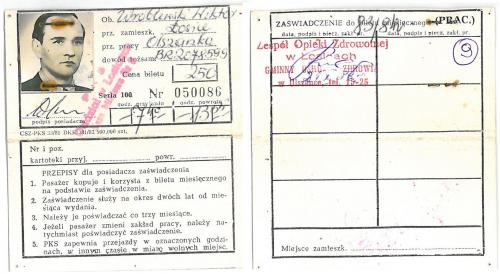 Ob. Wróblewski Wiktor
prz. zamieszk. Łosie
prz. pracy Olszanka
dowód tożsam. BR 2078599
Cena biletu 250
Seria 100 Nr 050086
godz. przyjazdu godz. powrotu
podpis posiadacza
Nr i poz.
kartoteki przyj. powr.
PRZEPISY dla posiadacza zaświadczenia
1. Pasażer kupuje i korzysta z biletu miesięcznego
na podstawie zaświadczenia.
2. Zaświadczenie służy na okres dwóch lat od mie-
siąca wydania.
3. Należy je poświadczać co trzy miesiące.
4. Jeżeli pasażer zmieni zakład pracy, należy na-
tychmiast poświadczyć zaświadczenie.
5. PKS zapewnia przejazdy w oznaczonych godzi-
nach, w innym czasie w miarę wolnych miejsc.
ZAŚWIADCZENIE do biletu miesięcznego (PRAC.)
data, podpis i piecz. zakł. pr. data, podpis i piecz. zakł. pr.
Zespół Opieki Zdrowotnej
w Łosicach
GMINNY OŚR. ZDROWIA
w Olszance, tel. 15-25
9
Miejsce zamieszk.